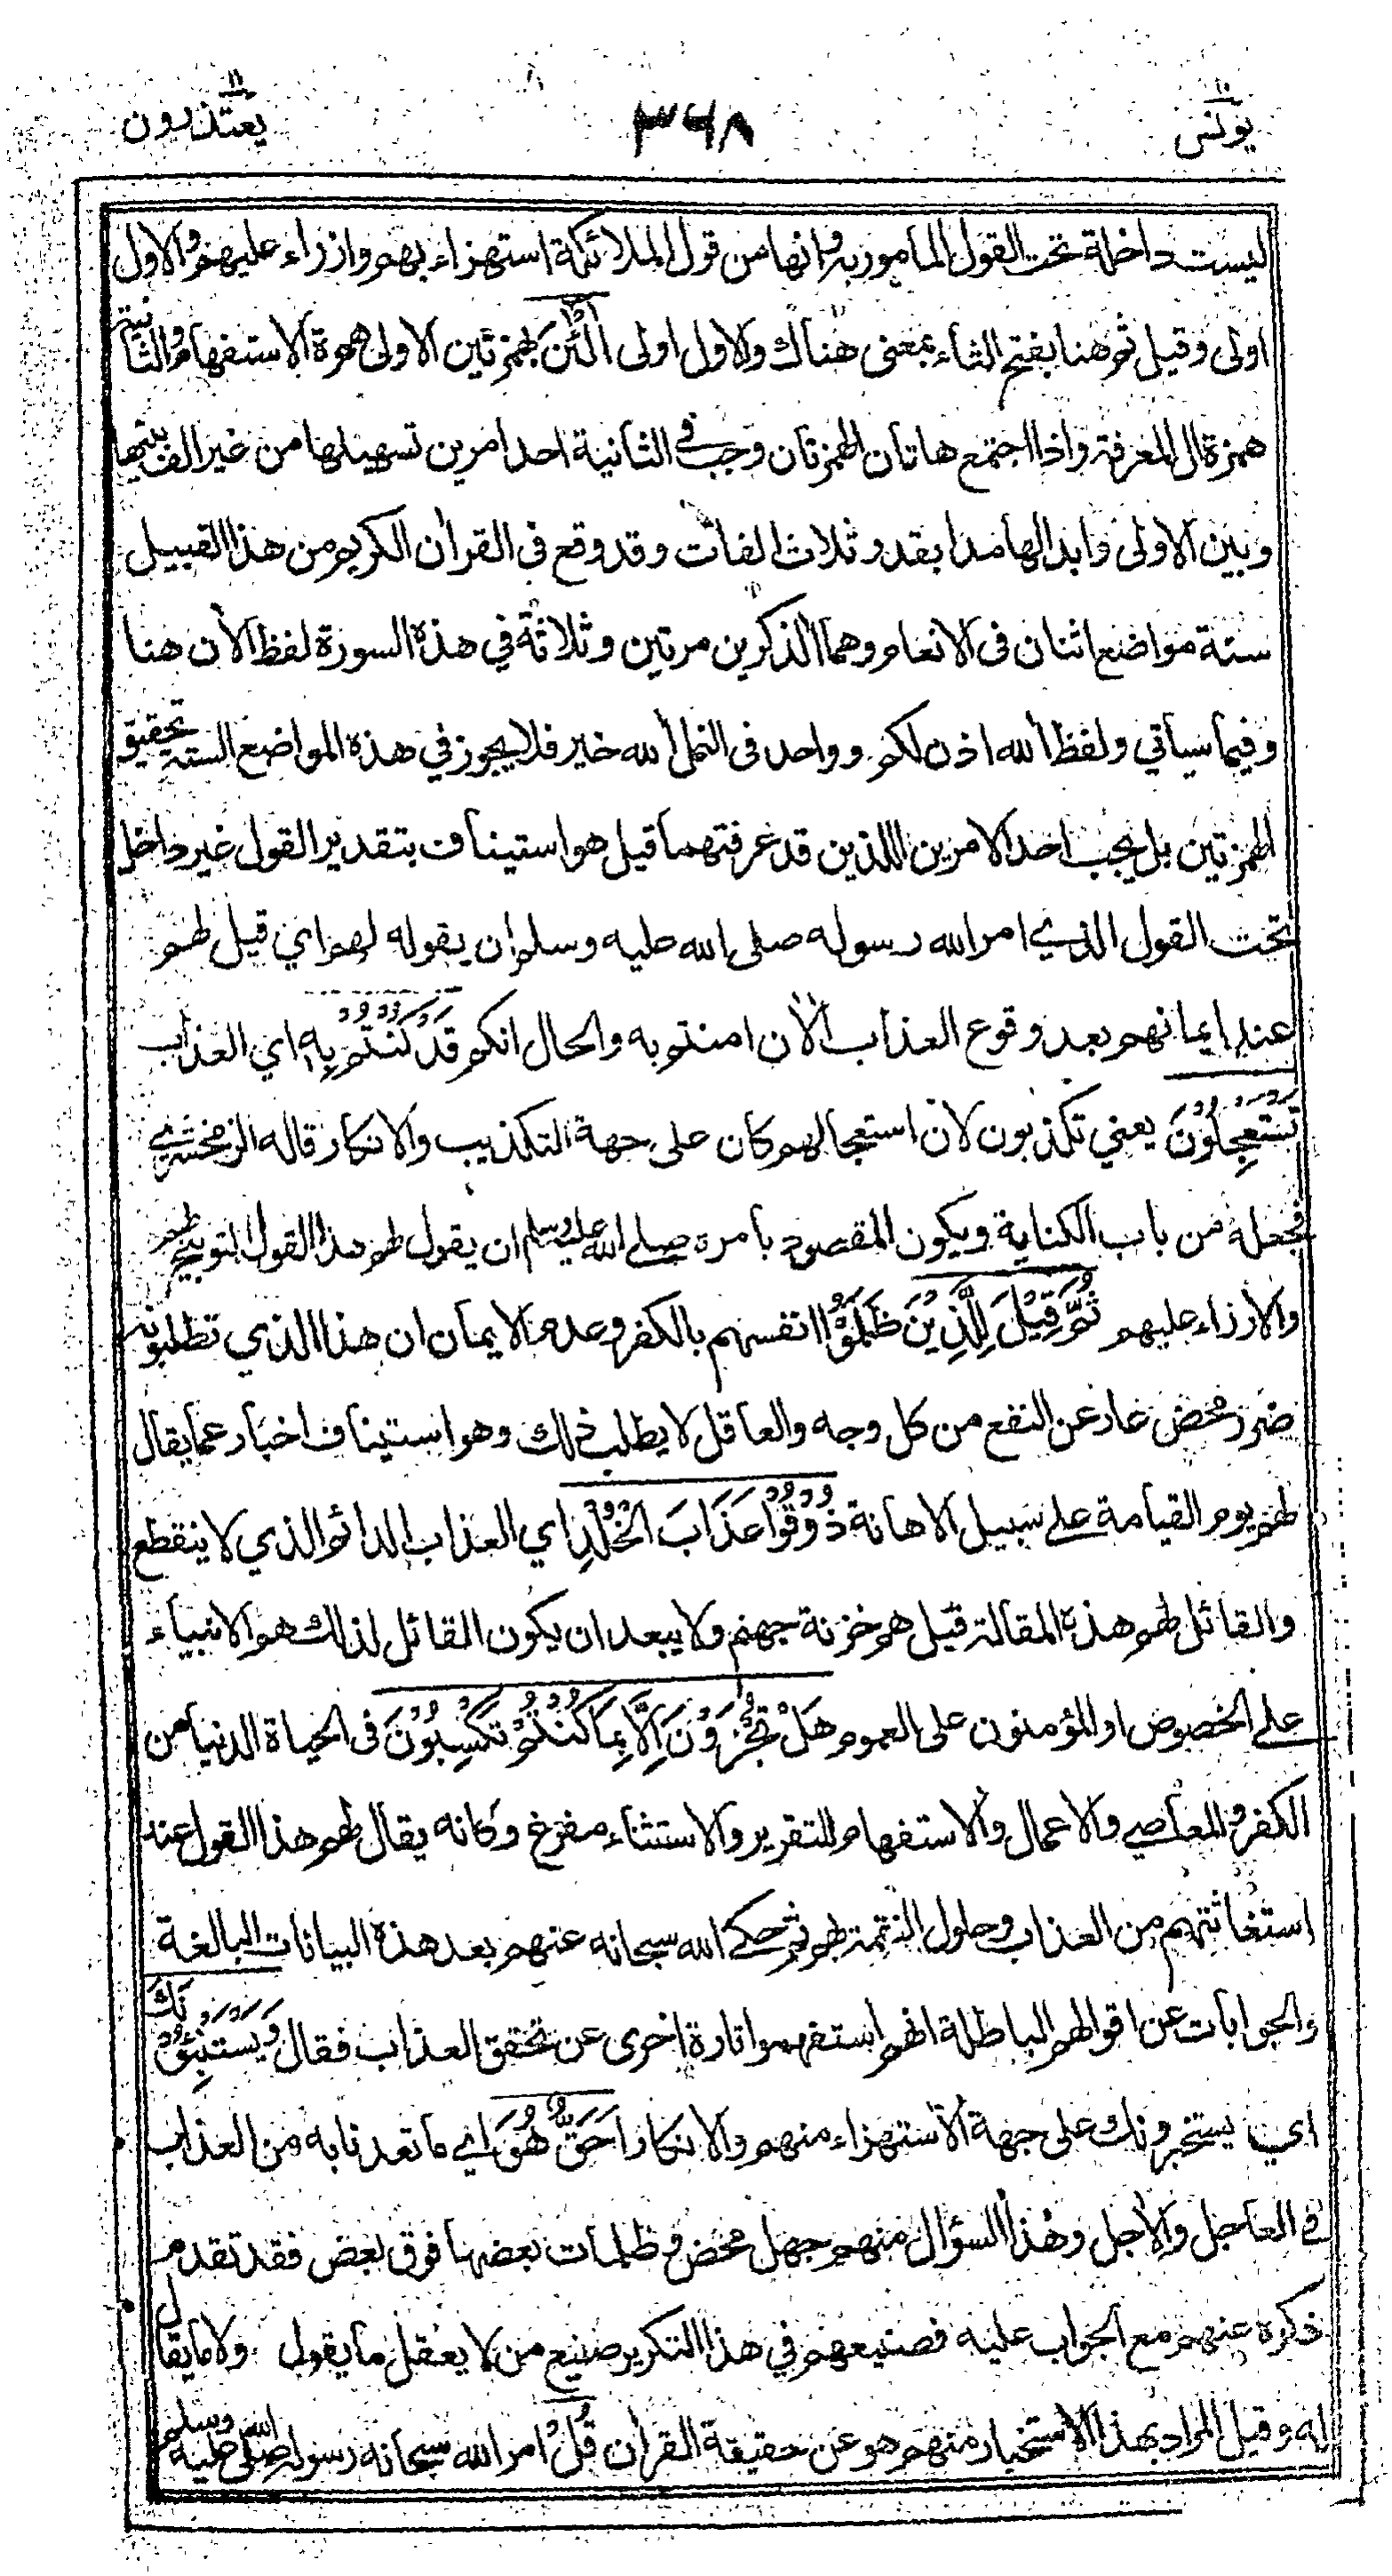 يونس ١٠
٣٦٨
يعتذرون ١١
ليست داخلة تحت القول المامور به وانها من قول الملائكة استهزاء بهم وازراء عليهم والاول
اولى وقيل ثم هنا بفتح الثاء بمعنى هناك والاول اولى آلْئٰنَ بهمزتين الاولى همزة الاستفهام والثانية
همزة ال المعرفة واذا اجتمع هاتان الهمزتان وجب في الثانية احد امرين تسهيلها من غير الف بينها
وبين الاولى وابدالها مدا بقدر ثلاث الفات وقد وقع فى القران الكريم من هذا القبيل
ستة مواضع اثنان فى الانعام وهما الذكرين مرتين وثلاثة في هذه السورة لفظ الأن هنا
وفيما سياتي ولفظ ألله اذن لكم وواحد فى النمل ألله خير فلا يجوز في هذه المواضع الستة تحقيق
الهمزتين بل يجب احد الامرين اللذين قد عرفتهما قيل هو استيناف بتقدير القول غير داخل
تحت القول الذي امر الله رسوله صلى الله عليه وسلم ان يقوله لهم اي قيل لهم
عند ايمانهم بعد وقوع العذاب الأن امنتم به والحال انكم قَدْ كُنْتُمْ بِهٖ اي العذاب
تَسْتَعْجِلُوْنَ يعني تكذبون لان استعجالهم كان على جهة التكذيب والانكار قاله الزمخشري
فجعله من باب الكناية ويكون المقصود بامره صلى الله عليه وسلم ان يقول لهم هذا القول التوبيخ لهم
والازراء عليهم ثُمَّ قِيْلَ لِلَّذِيْنَ ظَلَمُوْا انفسهم بالكفر وعدم الايمان ان هذا الذي تطلبونه
ضرر محض عار عن النفع من كل وجه والعاقل لا يطلب ذلك وهو استيناف اخبار عما يقال
لهم يوم القيامة على سبيل الاهانة ذُوْقُوْا عَذَابَ الْخُلْدِ اي العذاب الدائم الذي لا ينقطع
والقائل لهم هذه المقالة قيل هم خزنة جهنم ولا يبعد ان يكون القائل لذلك هو الانبياء
على الخصوص او المؤمنون على العموم هَلْ تُجْزَوْنَ اِلَّا بِمَا كُنْتُمْ تَكْسِبُوْنَ فى الحياة الدنيا من
الكفر والمعاصي والاعمال والاستفهام للتقرير والاستثناء مفرغ وكانه يقال لهم هذا القول عند
استغاثتهم من العذاب وحلول النقمة لهم ثم حكى الله سبحانه عنهم بعد هذه البيانات البالغة
والجوابات عن اقوالهم الباطلة انهم استفهموا تارة اخرى عن تحقق العذاب فقال وَيَسْتَنْبِئُوْنَكَ
اي يستخبرونك على جهة الاستهزاء منهم والانكار اَحَقٌّ هُوَ اي ما تعدنا به من العذاب
فى العاجل والاجل وهذا السؤال منهم جهل محض وظلمات بعضها فوق بعض فقد تقدم
ذكره عنهم مع الجواب عليه فصنيعهم في هذا التكرير صنيع من لا يعقل ما يقول ولا ما يقال
له وقيل المراد بهذا الاستخبار منهم هو عن حقيقة القران قُلْ امر الله سبحانه رسوله صلى الله عليه وسلم